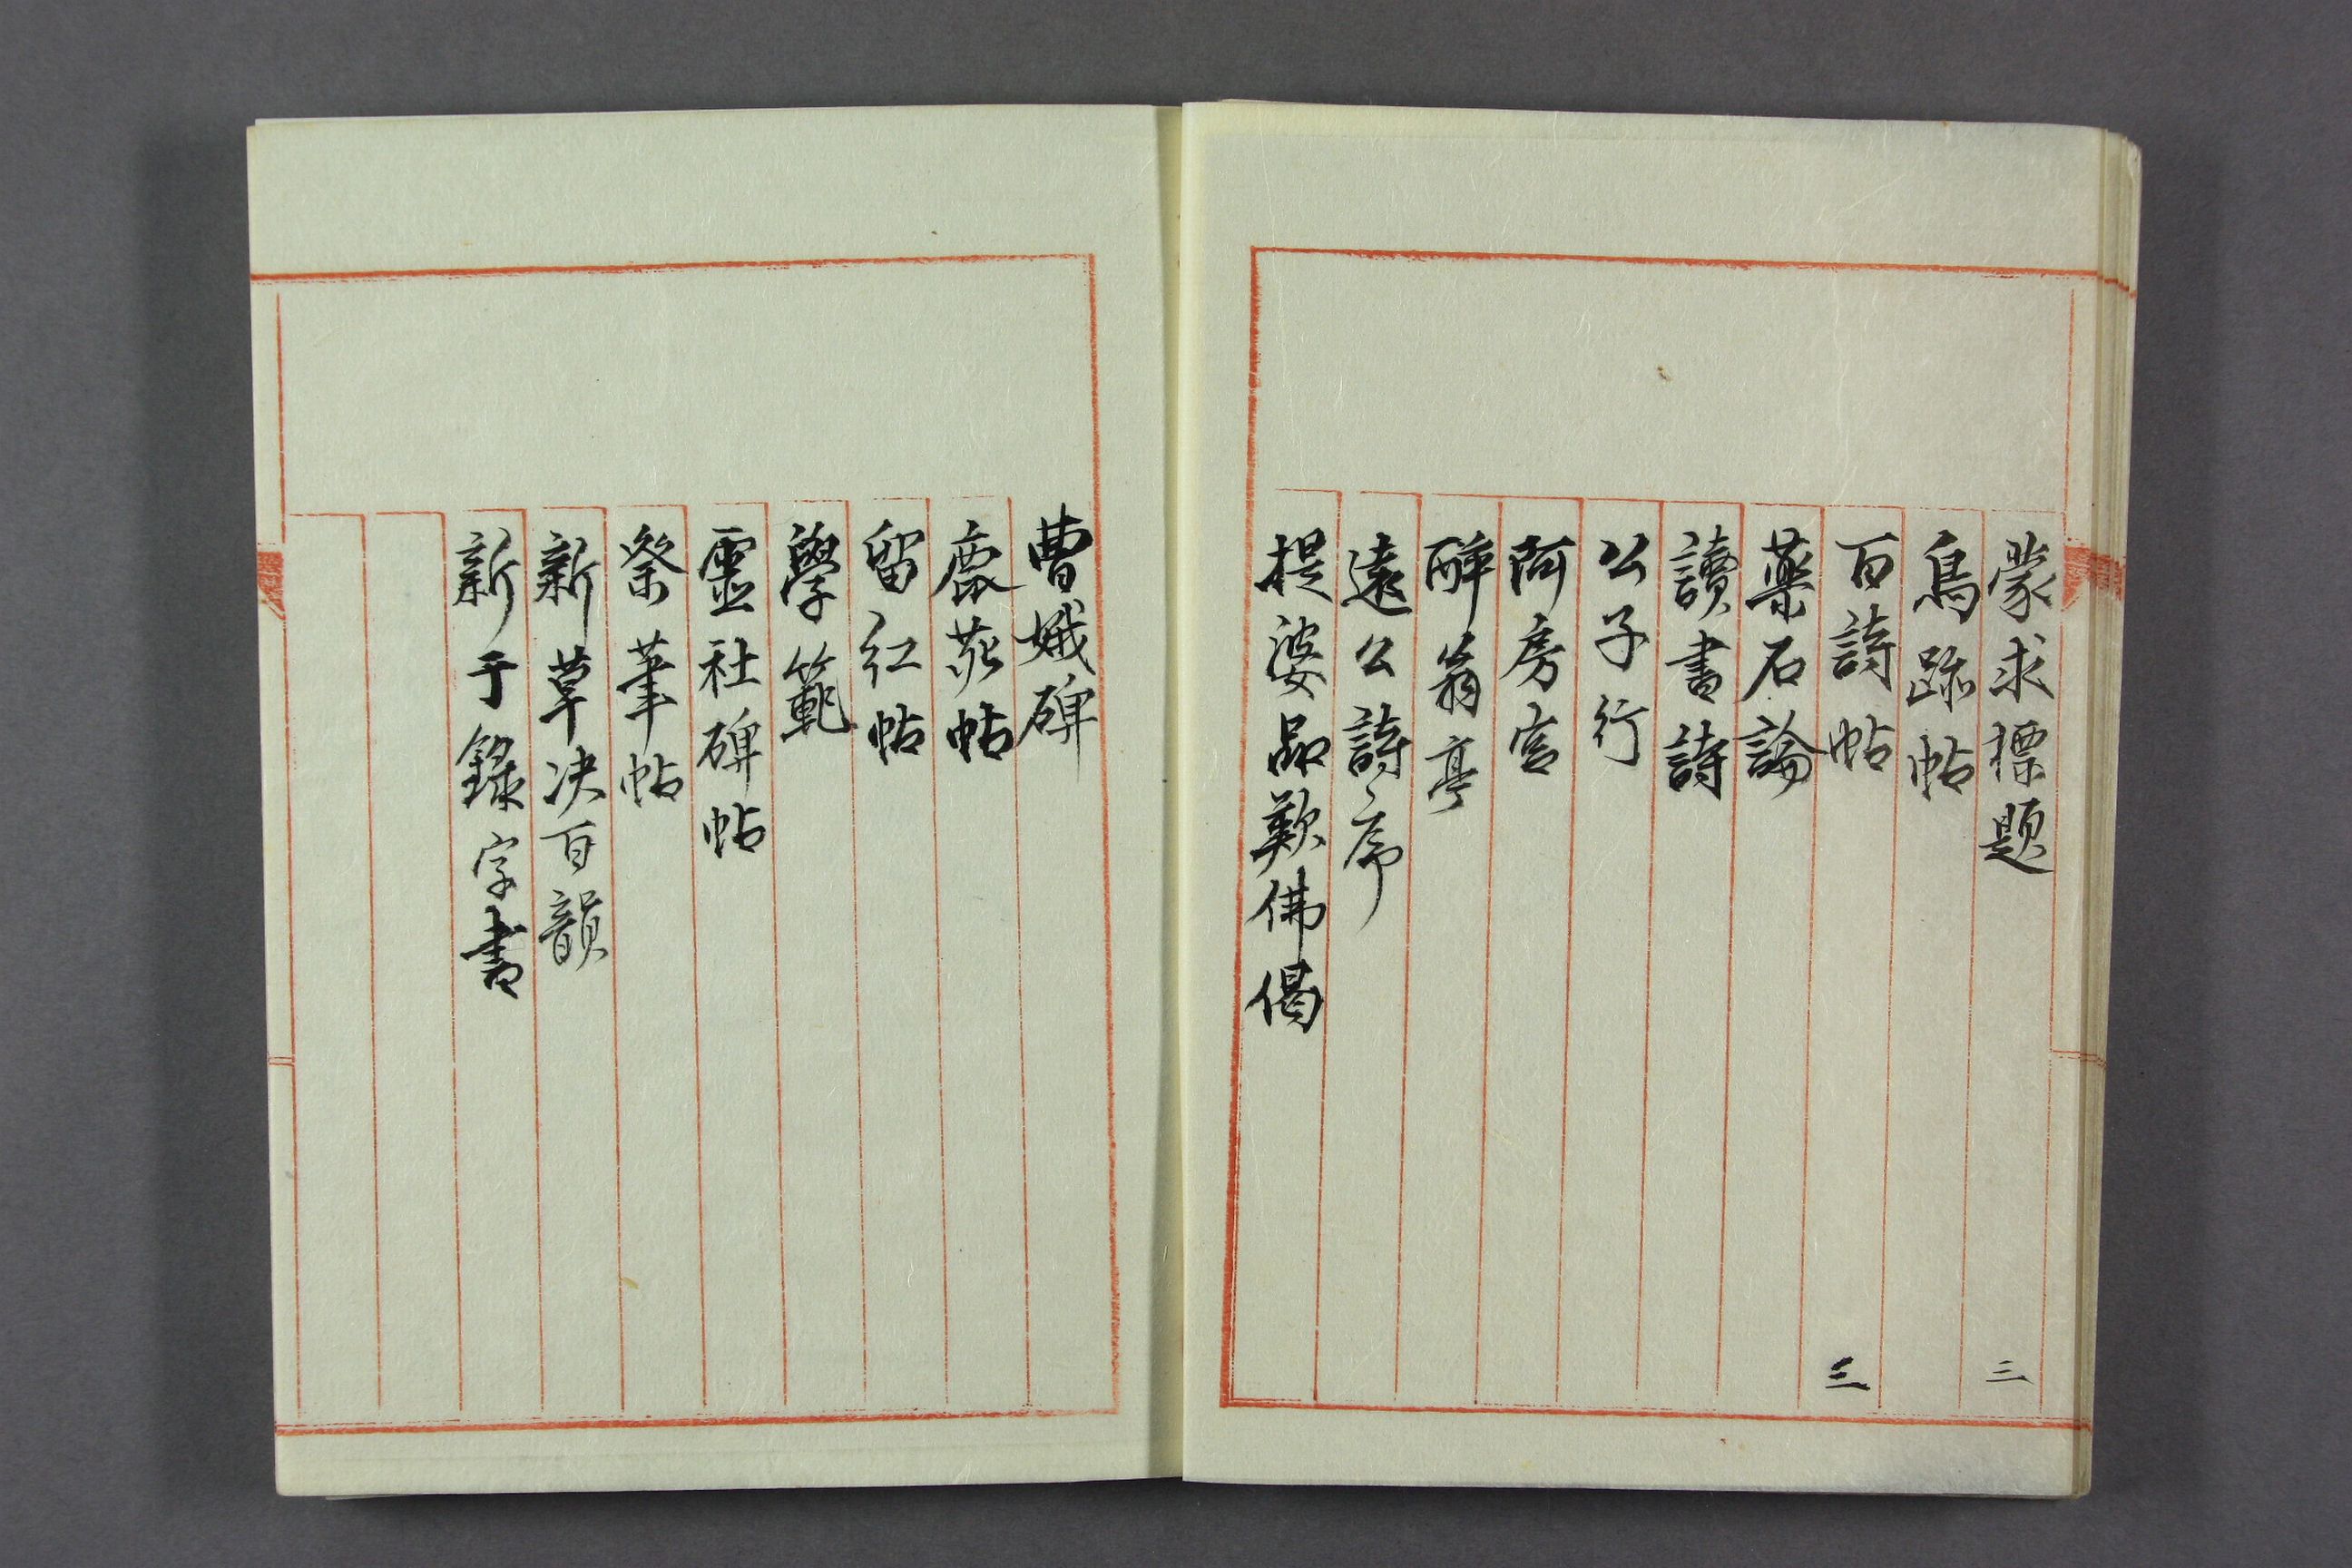 蒙求標題 三
鳥跡帖
百詩帖 三
薬石論
讀書詩
公子行
阿房宮
醉翁亭
遠公詩序
提婆品歎佛偈
曹娥碑
鹿茈帖
留紅帖
學範
靈社碑帖
祭筆帖
新草决百韻
新干錄字書